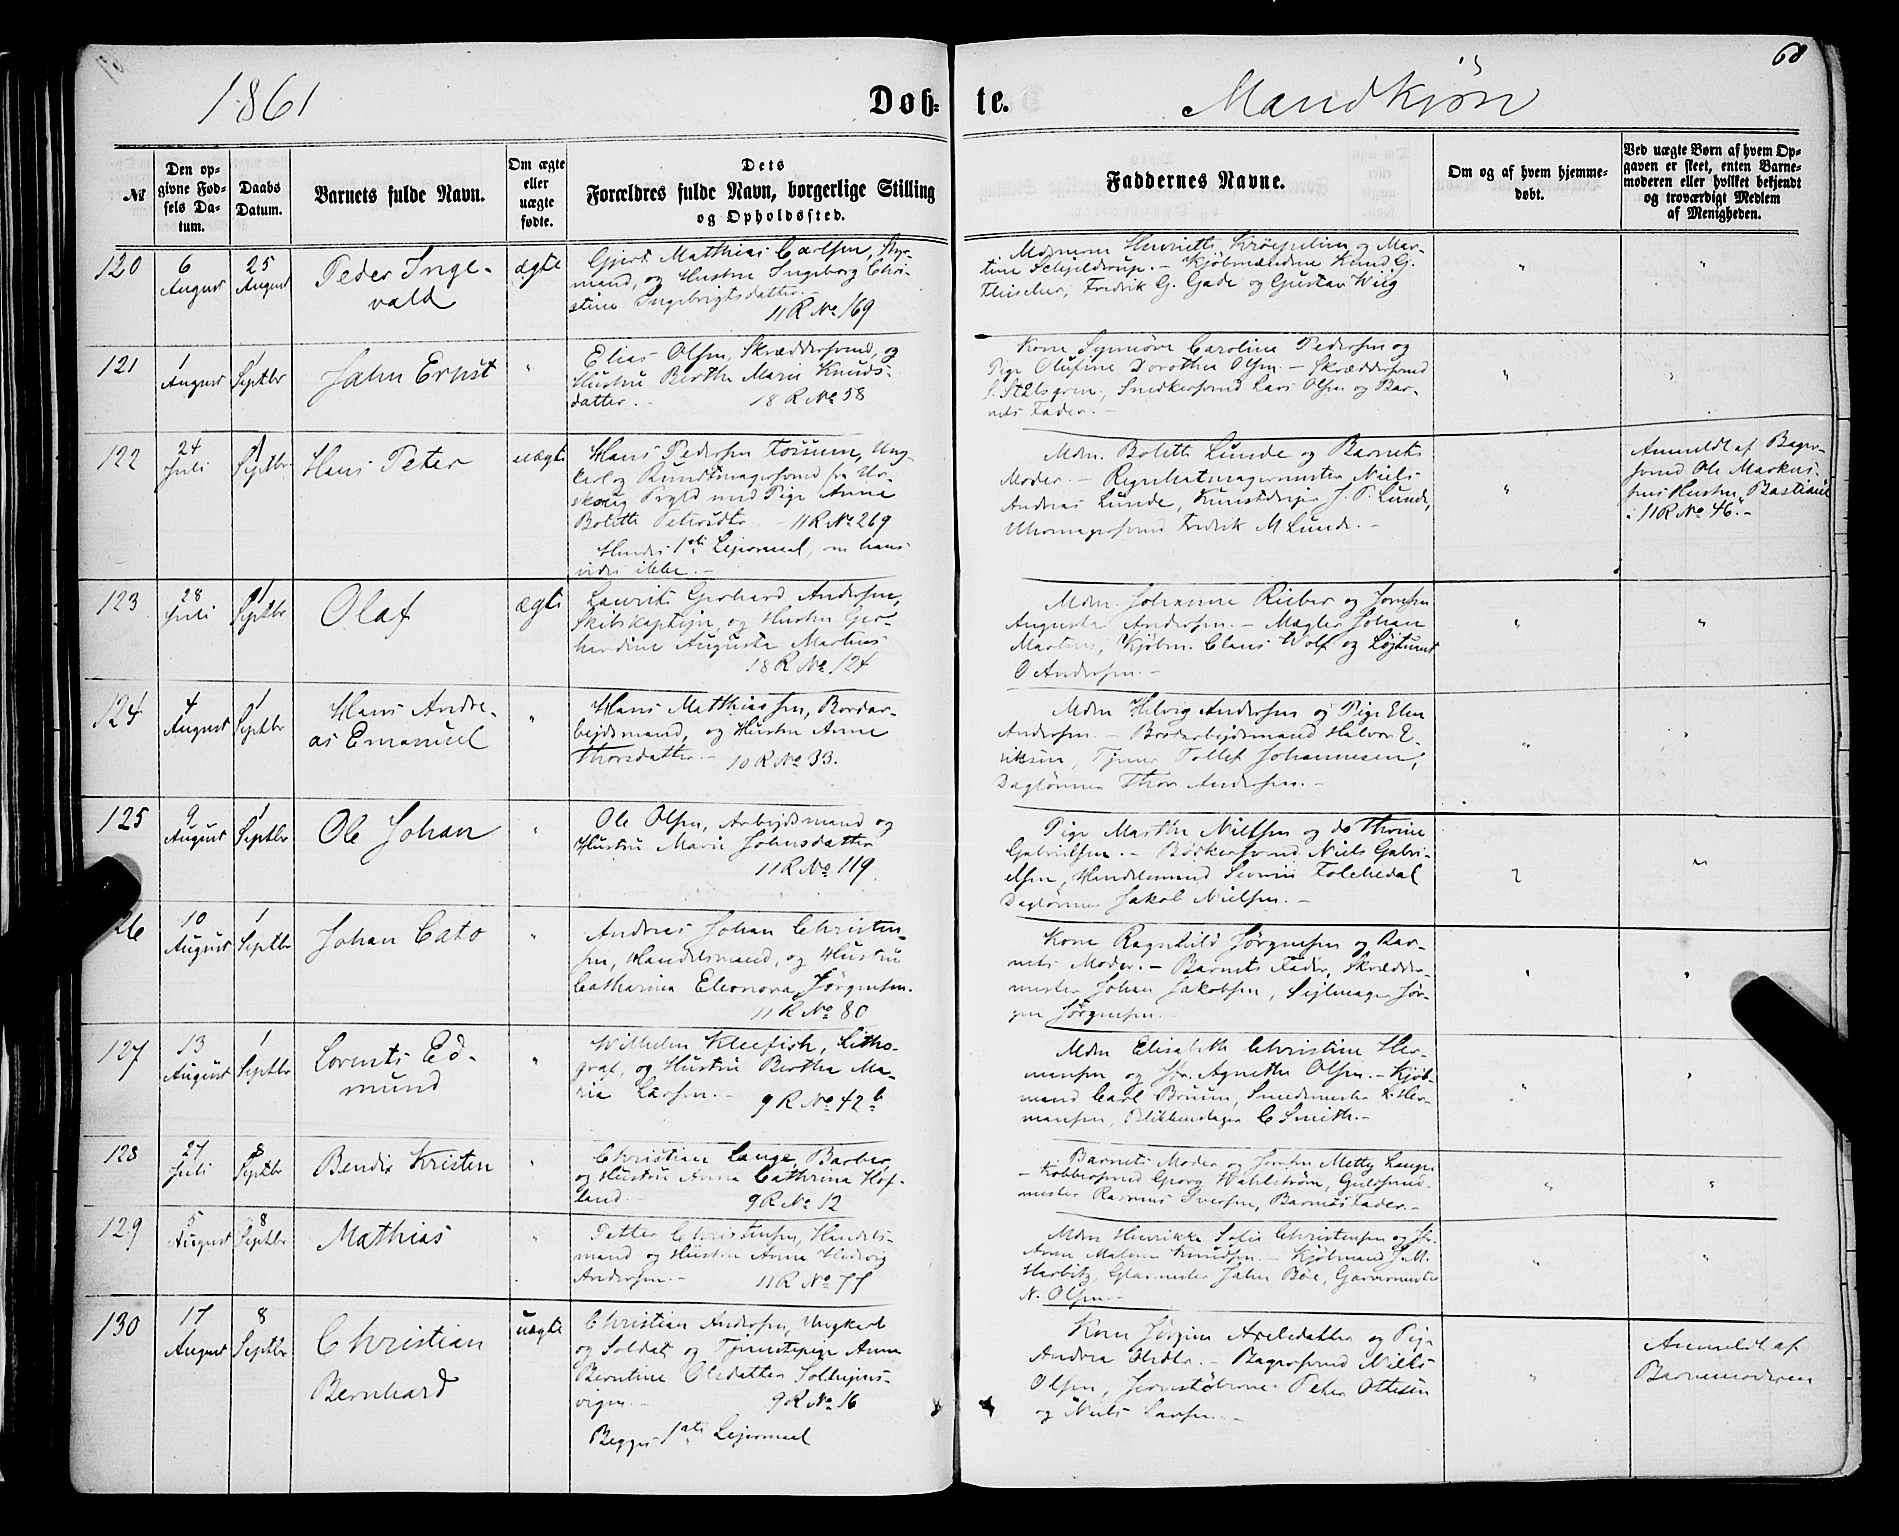 68
1861
Døb-
te.
Mandkjøn
№
Den op-
givne Fød-
sels Da-
tum.
Daabs
Datum.
Barnets fulde Navn.
Om ægte
eller
uægte
fødte.
Dets
Forældres fulde Navn, borgerlige Stilling
og Opholdssted.
Faddernes Navne.
Om og af hvem hjemme-
døbt.
Ved uægte Børn af hvem Op-
gaven er skeet, enten Barne-
moderen eller hvilket bekjendt
og troværdigt Medlem
af Menigheden.
120
6
August
25
August
Peder Inge-
vald
ægte
Gjert Matthias Carlsen, Sty-
mand, og Hustru Ingeborg Chri-
stine Ingebrigtsdatter.-
11 R No 169
Mdmerne Henriette Krøepelien og Mar-
tine Schjeldrup. - Kjøbmændene Knud G.
Fleischer, Fredrik G. Gade og Gustav Wiig
"
"
121
1
August
1
Septbr
Jahn Ernst
"
Elias Olsen, Skræddersvend, og
Hustru Berthe Marie Knuds-
datter.-
18 R No 58
Kone Synnøve Caroline Pedersen og
Pige Olufine Dorothea Olsen - Skræddersvend
S. Stålsgren, Snedkersvend Lars Olsen og Bar-
nets Fader.-
"
"
122
24
Juli
1
Septbr
Hans Peter
uægte
Hans Pedersen Fossum, Ung-
karl og Bundtmagersvend fra Ur-
skoug Prgld med Pige Anne
Bolette Petersdtr - 11 R No 269
Hendes 1ste Lejermaal, om hans
vides ikke.-
Mdm. Bolette Lunde og Barnets
Moder. - Regnhatmagermester Niels
Andreas Lunde, Kunstdreier J. P. Lunde,
Uhrmagersvend Fredrik M Lunde.-
"
Anmeldt af Bager-
svend Ole Markus-
sens Hustru Bastiane
i 11 R No 46.-
123
28
Juli
1
Septbr
Olaf
ægte
Laurits Gerhard Andersen,
Skibskaptejn, og Hustru Ger-
hardine Augusta Martens
18 R No 124
Mdm. Johanne Rieber og Jomfru
Augusta Andersen. - Mægler Johan
Martens, Kjøbm. Claus Wolf og Løjtnant
O Andersen.-
"
"
124
4
August
1
Septbr
Hans Andre-
as Emanuel
"
Hans Matthiassen, Bordar-
bejdsmand, og Hustru Anne
Thorsdatter.- 10 R No 33.
Mdm Helvig Andersen og Pige Elen
Andersen. - Bordarbejdsmand Halvor E-
riksen, Tjener Tollef Johannesen,
Daglønner Thor Andersen.-
"
"
125
9
August
1
Septbr
Ole Johan
"
Ole Olsen, Arbejdsmand og
Hustru Marie Johnsdatter
11 R No 119
Pige Marthe Nielsen og do Thrine
Gabrielsen. - Bødkersvend Niels Gabri-
elsen, Handelsmand Severin Folchedal
Daglønner Jakob Nielsen.-
"
"
26
10
August
1
Septbr
Johan Cato
"
Andreas Johan Christen-
sen, Handelsmand, og Hustru
Catharina Eleonora Jørgensen.
11 R No 80
Kone Ragnhild Jørgensen og Bar-
nets Moder. - Barnets Fader, Skrædder-
mester Johan Jakobsen, Sejlmager Jør-
gen Jørgensen.
"
"
127
13
August
1
Septbr
Lorents Ed-
mund
"
Wilhelm Kleefish, Litho-
graf, og Hustru Bertha Ma-
ria Larsen.- 9 R No 42 b
Mdm Elisabeth Christine Her-
mansen og Jfr. Agnethe Olsen. - Kjøb-
mand Carl Bruun, Smedmester L. Her-
mansen, Blikkenslager C Smith.-
"
"
128
27
Juli
8
Septbr
Bendix Kristen
"
Christian Lange, Barber,
og Hustru Anna Cathrina Hof-
land.- 9 R No 12
Barnets Moder og Jomfru Metty Lange.
- Kobbersmed Georg Wahlstrøm, Guldsmed-
mester Rasmus Iversen, Barnets Fader.-
"
"
129
5
August
8
Septbr
Mathias
"
Petter Christensen, Handels-
mand og Hustru Anna Hedvig
Andersen.- 11 R No 75
Mdm Henrikke Sofie Christensen og Jfr.
Anne Malene Knudsen. - Kjøbmand J. M.
Herbitz, Glarmester Jahn Bøe, Garvermester
N. Olsen.-
"
"
130
17
August
8
Septbr
Christian
Bernhard
uægte
Christian Andersen, Ungkarl
og Soldat og Tjenestepige Anne
Berntine Olsdatter Solhejms-
vigen.- 9 R No 16
Begges 1ste Lejermaal
Kone Jørgine Axelsdatter og Pige
Andrea - Bagersvend Niels
Olsen, Jernstøberne Peter Ottesen
og Niels Larsen.-
"
Anmeldt af
Barnemoderen